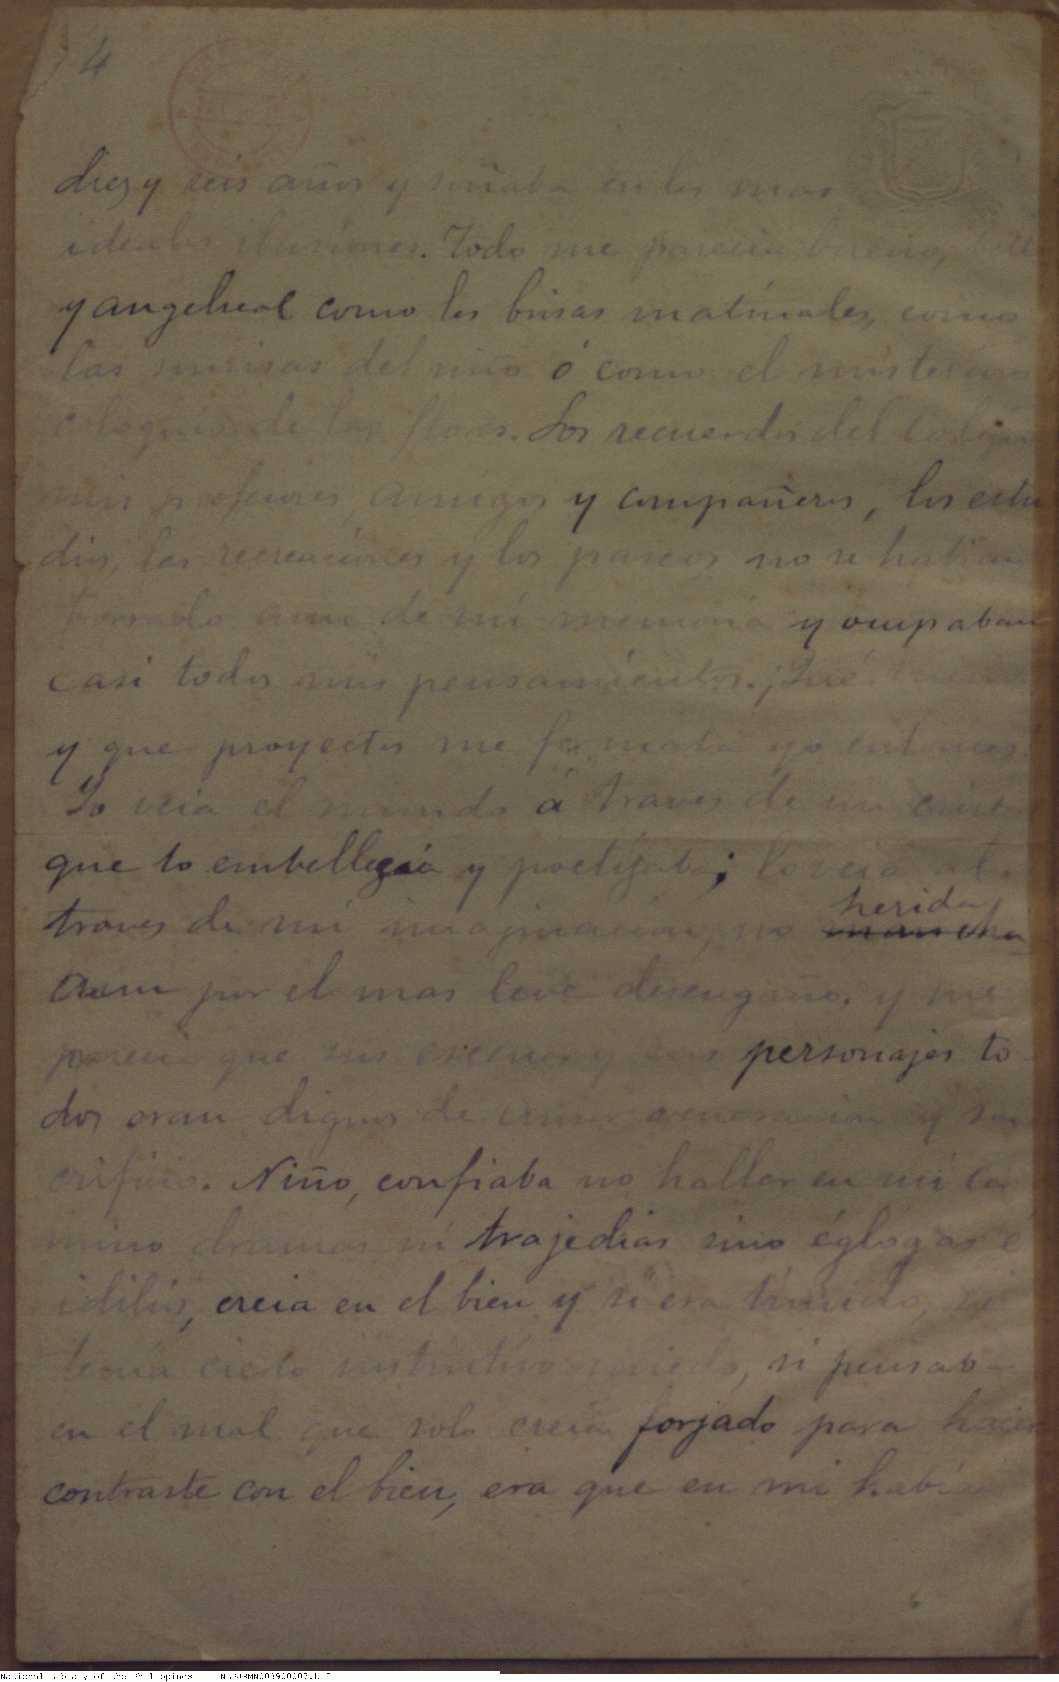 4
diez y seis años y soñaba en las mas
ideales ilusiones. Todo me parecia bueno,
y angelical como las brisas matinales, como
las sonrisas del niño ó como el misterioso
coloquio de las flores. Los recuerdos del Colegio
mis profesores, amigos y compañeros, los estu
dios, las recreaciones y los paseos no se habian
borrado aun de mi memoria y ocupaban
casi todos mis pensamientos. ¡Qué
y que proyectos me formaba yo entonces!
Yo veia el mundo á traves de un
que lo embellecia y poetizaba; lo veia al
traves de mi imaginacion, no herida
aun por el mas leve desengaño, y me
parecia que sus escenas y sus personajes to-
dos eran dignos de amor veneracion y sa
crificio. Niño, confiaba no hallar en mi ca
mino dramas ni trajedias sino églogas é
idilios, creia en el bien y si era timido, si
tenia cierto instintivo miedo, si pensaba
en el mal que solo creia forjado para hacer
contraste con el bien, era que en mi habia
National Library of the Philippines